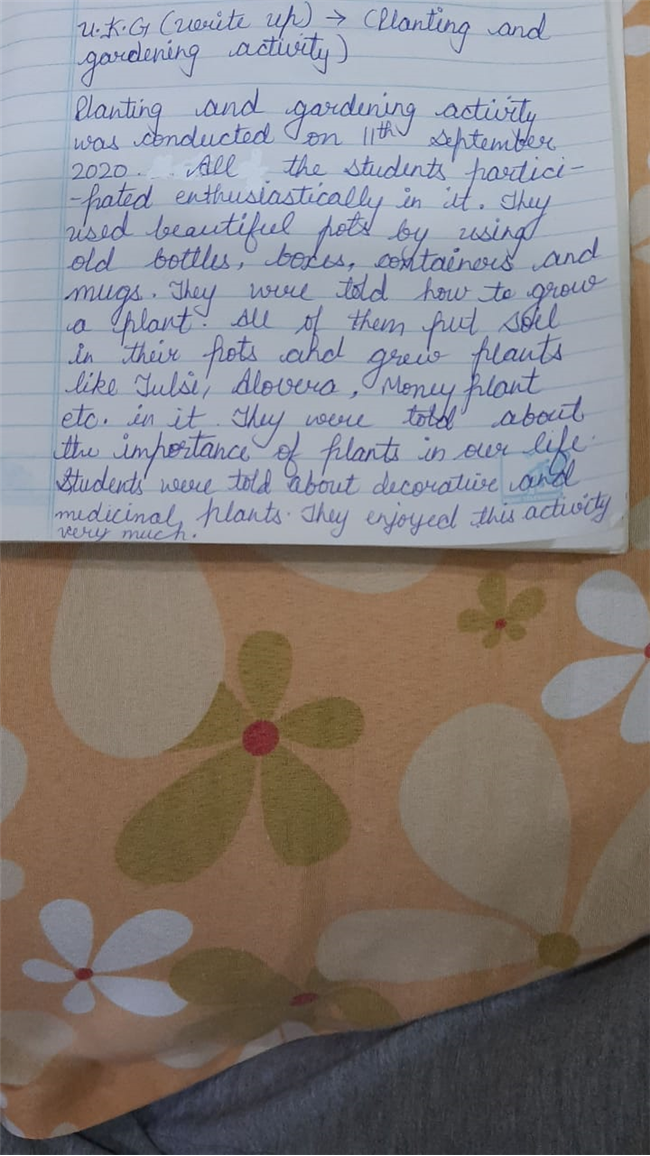 U.K.G (write up) → (Planting and
gardening activity)
Planting and gardening activity
was conducted on 11th September
2020. All the students partici-
-pated enthusiastically in it. They
used beautiful pots by using
old bottles, boxes, containers and
mugs. They were told how to grow
a plant. All of them put soil
in their pots and grew plants
like Tulsi, Alovera, Money plant
etc. in it. They were told about
the importance of plants in our life.
Students were told about decorative and
medicinal plants. They enjoyed this activity
very much.